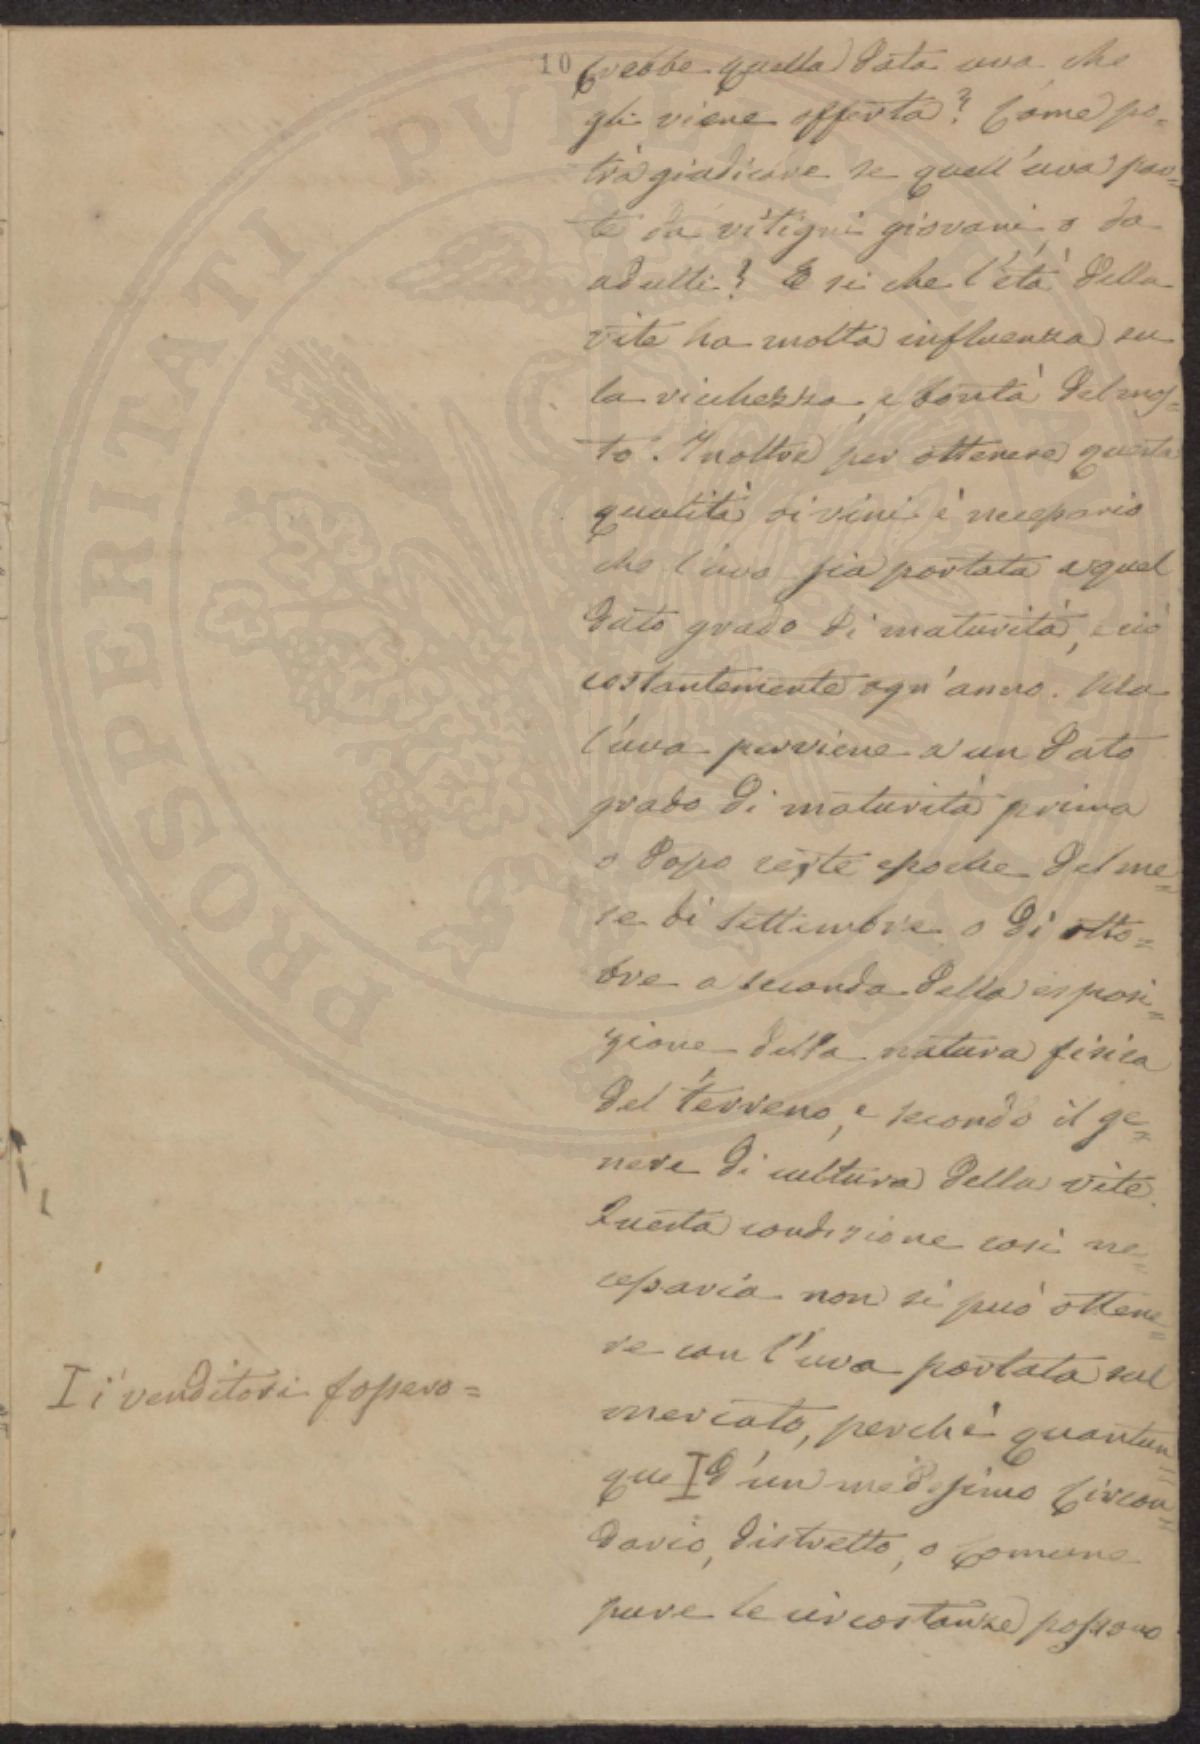 10
crebbe quella data uva che
gli viene offerta? Come po=
trà giudicare se quell'uva par=
te da vitigni giovani, o da
adulti? E si che l'età della
vite ha molta influenza su
la ricchezza, e bontà del mos=
to. Inoltre per ottenere questa
qualità di vini è necessario
che l'uva sia portata a quel
dato grado di maturità, e ciò
costantemente ogn'anno. Ma
l'uva perviene a un dato
grado di maturità prima
o dopo certe epoche del me=
se di Settembre o di otto=
bre a seconda della esposi=
zione della natura fisica
del terreno, e secondo il ge=
nere di cultura della vite.
Questa condizione così ne=
cessaria non si può ottene=
re con l'uva portata sul
mercato, perchè quantun=
que I d'un medesimo Circon=
dario, distretto, o Comune
pure le circostanze possono
I i venditori fossero=
PROSPERITATI PVBLICAE